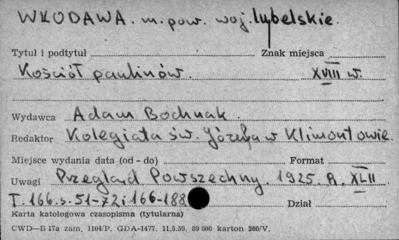 WŁODAWA. m. pow. woj. lubelskie.
Tytuł i podtytuł Znak miejsca
Kościół paulinów. XVIII w.
Wydawca Adam Bochnak.
Redaktor Kolegiata św. Józefa w Klimontowie.
Miejsce wydania data (od - do) Format
Uwagi Przegląd Powszechny. 1925. R. XLII
T. 166. s. 51-72 i 166-188 Dział
Karta katalogowa czasopisma (tytularna)
CWD—B 17a zam. 1104/P. GDA-1477. 11.5.59. 89 600 karton 260/V.